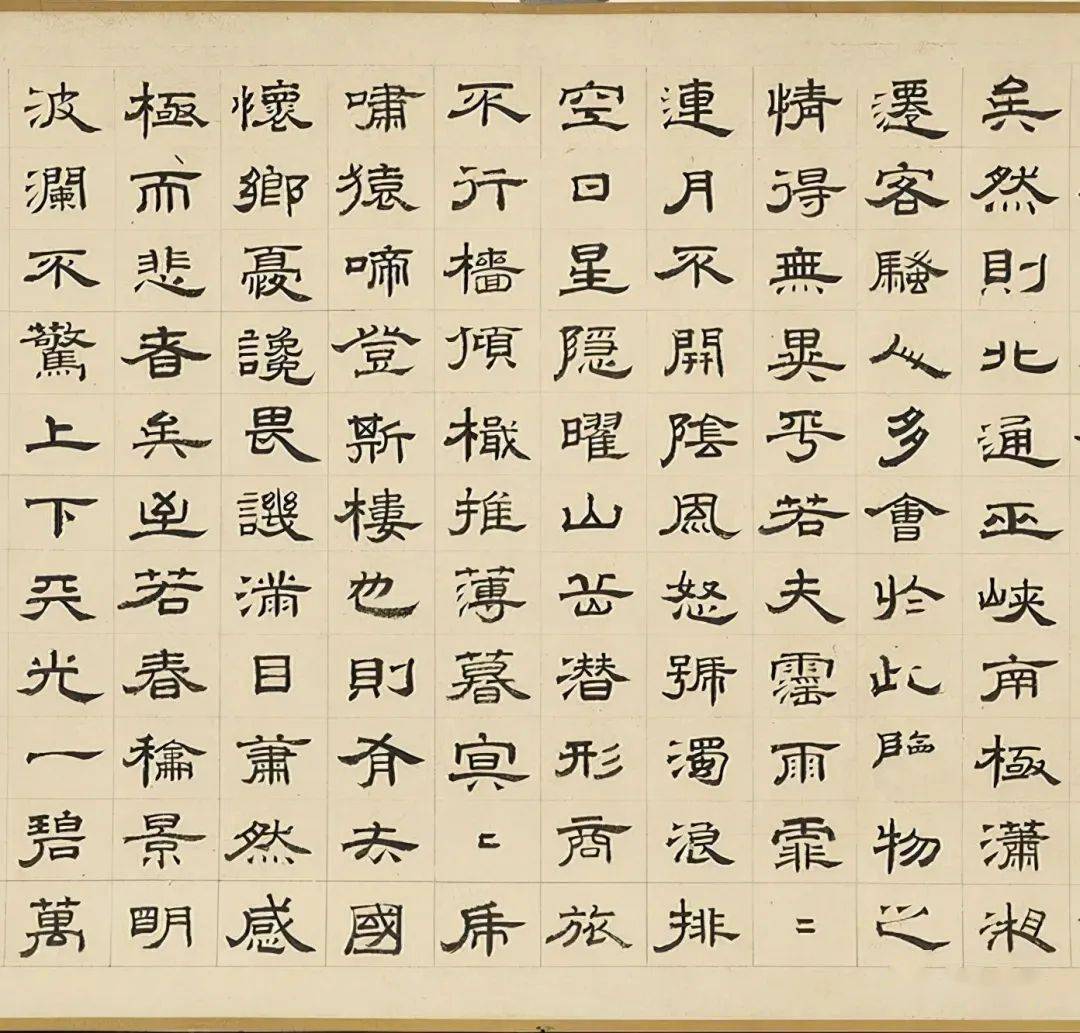 矣然則北通巫峽南極瀟湘
遷客騷人多會於此臨物之
情得無異乎若夫霪雨霏〻
連月不開陰風怒號濁浪排
空日星隱曜山岳潛形商旅
不行檣傾檝推薄暮冥〻虎
嘯猿啼登斯樓也則有去國
懷鄉憂讒畏譏滿目蕭然感
極而悲者矣至若春龢景明
波瀾不驚上下天光一碧萬